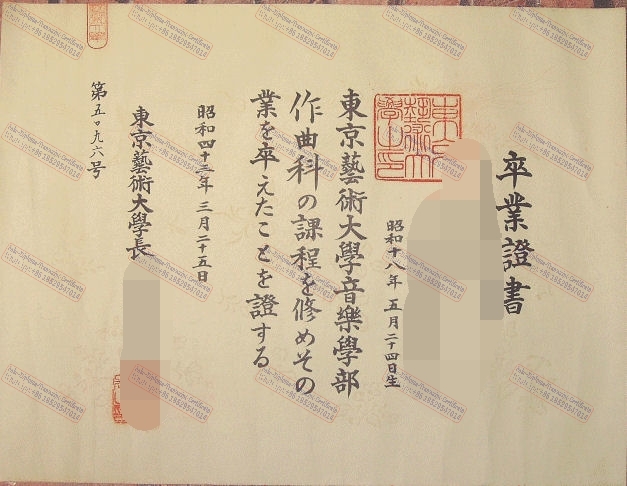 卒業證書
昭和十八年 五月二十四日生
東京藝術大學音樂學部
作曲科の課程を修めその
業を卒えたことを證する
昭和四十三年 三月二十五日
東京藝術大學長
第五〇九六号
東京
藝術大
學出印